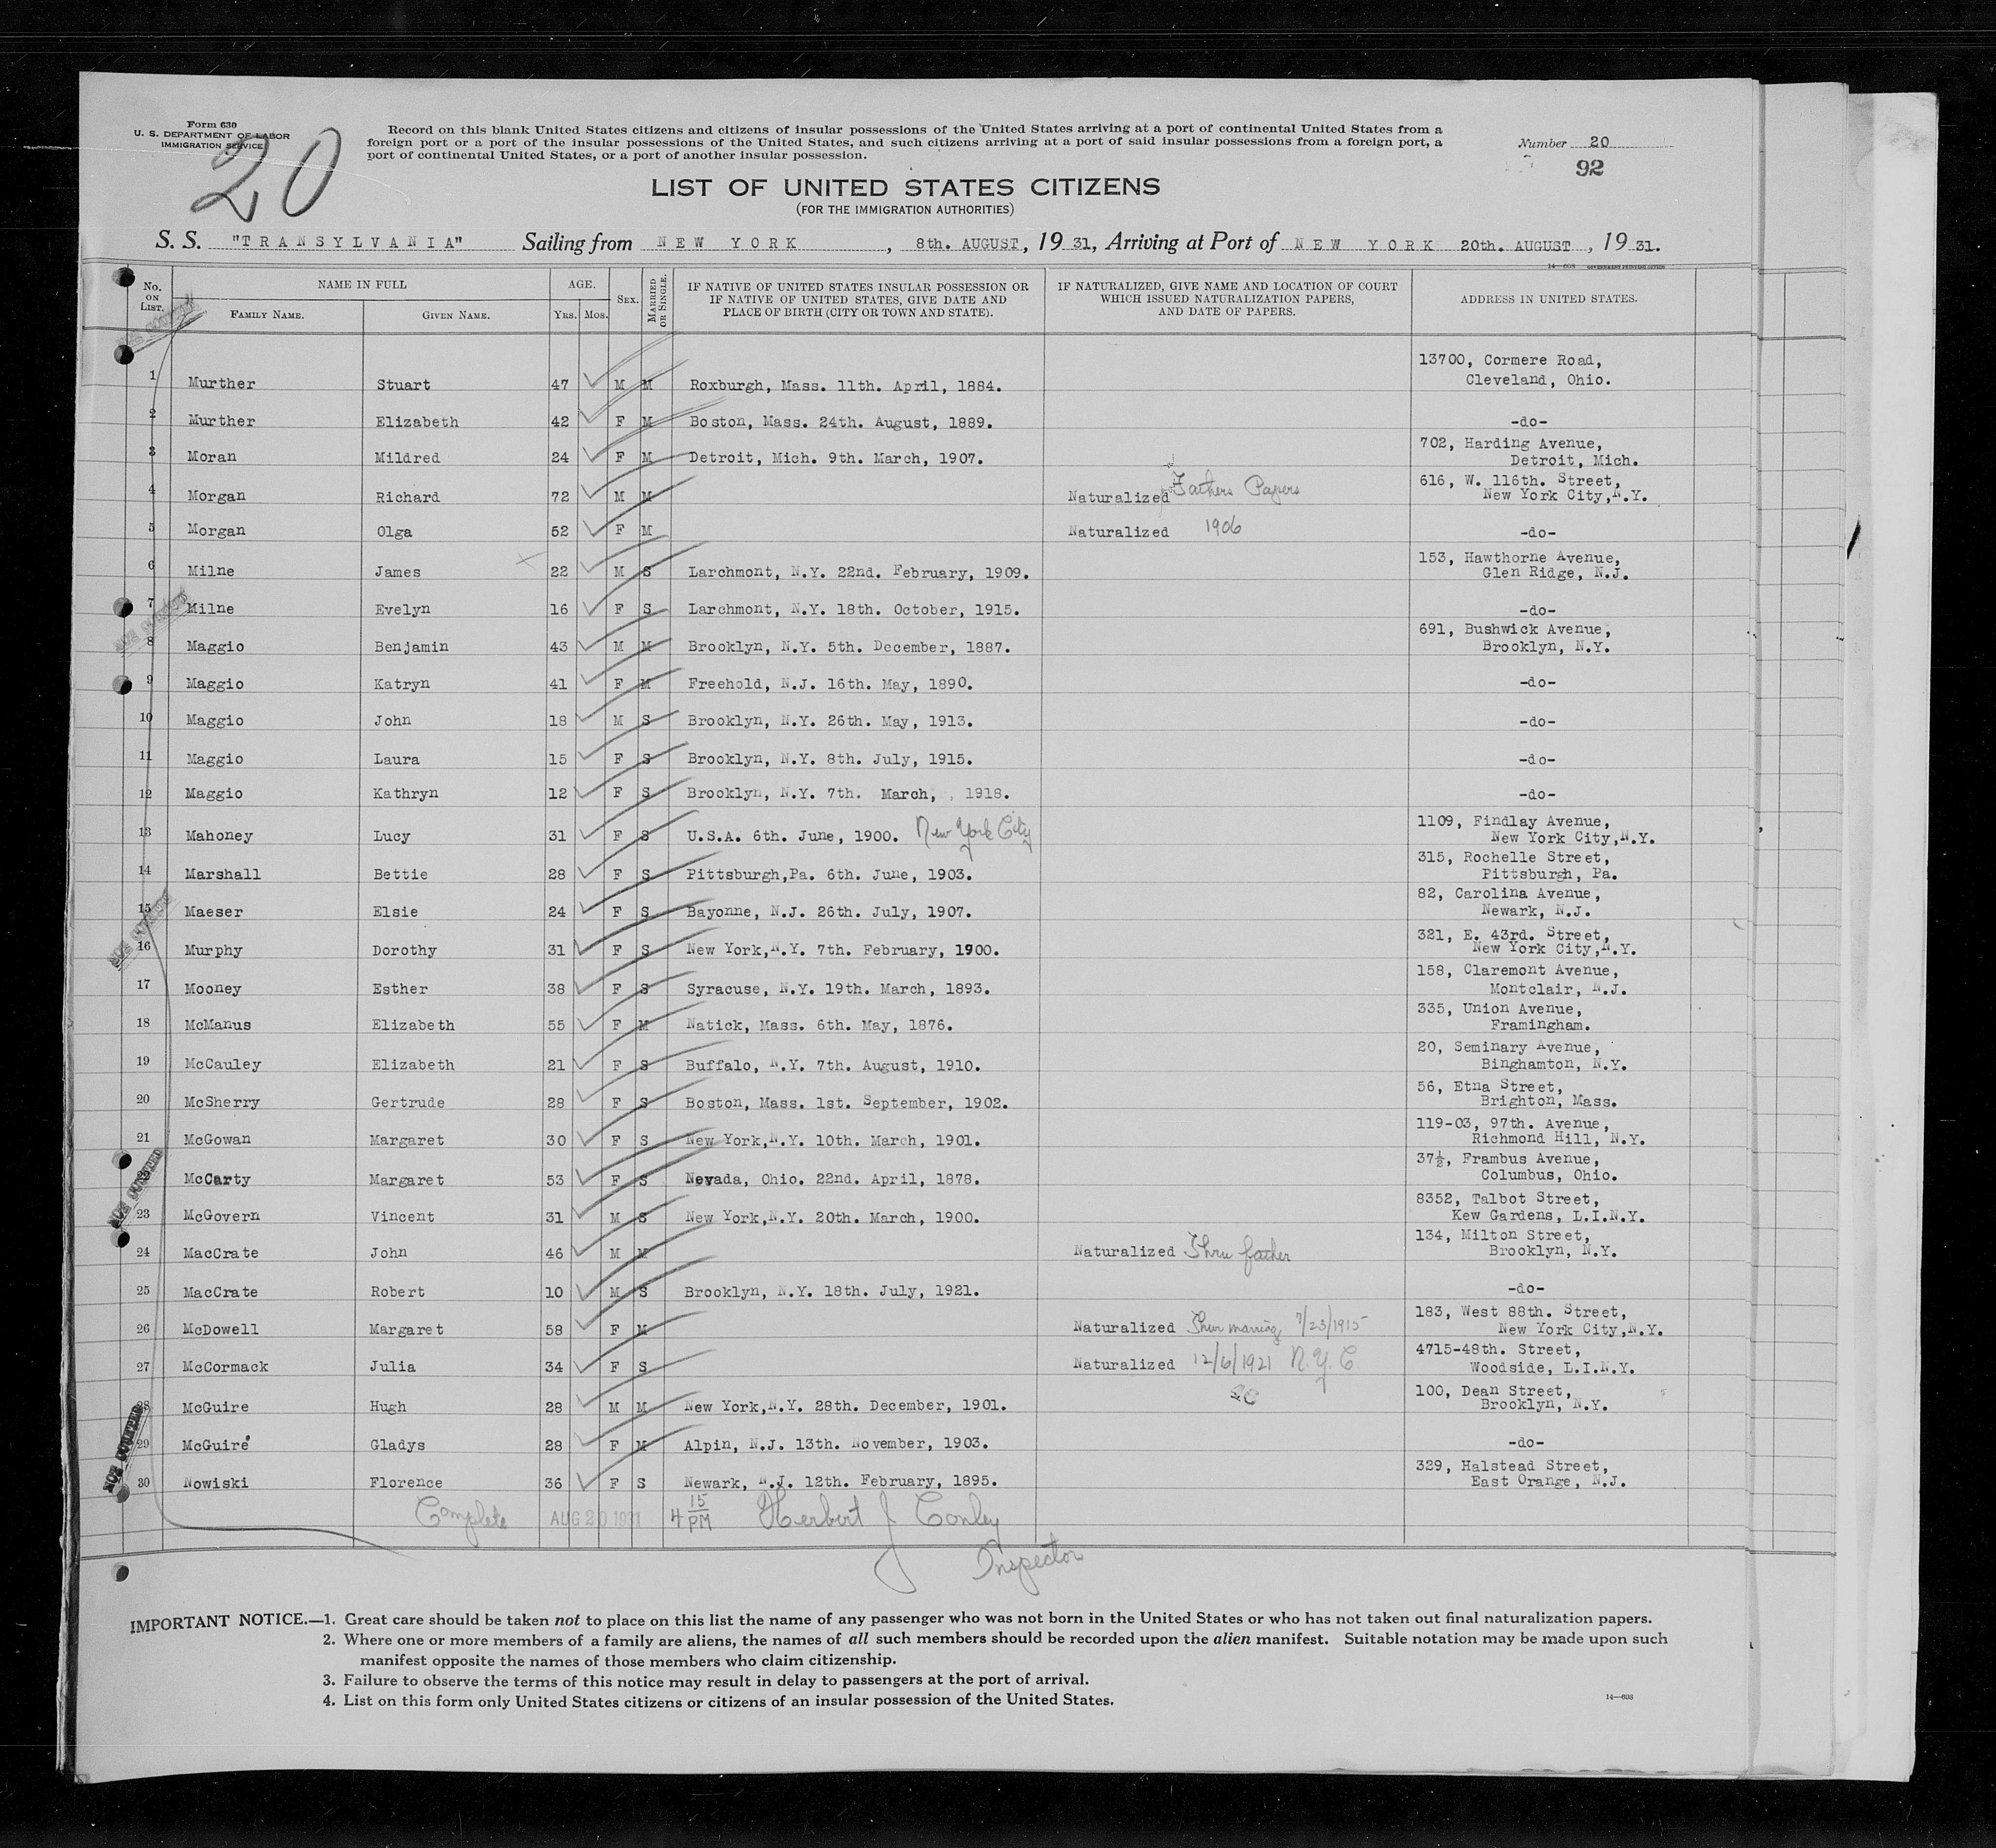 Form 630
U. S. DEPARTMENT OF LABOR
IMMIGRATION SERVICE
20
Record on this blank United States citizens and citizens of insular possessions of the United States arriving at a port of continental United States from a
foreign port or a port of the insular possessions of the United States, and such citizens arriving at a port of said insular possessions from a foreign port, a
port of continental United States, or a port of another insular possession.
Number 20
92
LIST OF UNITED STATES CITIZENS
(FOR THE IMMIGRATION AUTHORITIES)
S. S. "TRANSYLVANIA" Sailing from NEW YORK, 8th. AUGUST, 19 31, Arriving at Port of NEW YORK 20th. AUGUST, 19 31.
14—608 GOVERNMENT PRINTING OFFICE
No. ON LIST. NAME IN FULL AGE. SEX. MARRIED OR SINGLE. IF NATIVE OF UNITED STATES INSULAR POSSESSION OR IF NATIVE OF UNITED STATES, GIVE DATE AND PLACE OF BIRTH (CITY OR TOWN AND STATE). IF NATURALIZED, GIVE NAME AND LOCATION OF COURT WHICH ISSUED NATURALIZATION PAPERS, AND DATE OF PAPERS. ADDRESS IN UNITED STATES.
FAMILY NAME. GIVEN NAME. Yrs. Mos.
1 Murther Stuart 47 M M Roxburgh, Mass. 11th. April, 1884. 13700, Cormere Road, Cleveland, Ohio.
2 Murther Elizabeth 42 F M Boston, Mass. 24th. August, 1889. -do-
3 Moran Mildred 24 F M Detroit, Mich. 9th. March, 1907. 702, Harding Avenue, Detroit, Mich.
4 Morgan Richard 72 M M Naturalized Fathers Papers 616, W. 116th. Street, New York City, N.Y.
5 Morgan Olga 52 F M Naturalized 1906 -do-
6 Milne James 22 M S Larchmont, N.Y. 22nd. February, 1909. 153, Hawthorne Avenue, Glen Ridge, N.J.
7 Milne Evelyn 16 F S Larchmont, N.Y. 18th. October, 1915. -do-
8 Maggio Benjamin 43 M M Brooklyn, N.Y. 5th. December, 1887. 691, Bushwick Avenue, Brooklyn, N.Y.
9 Maggio Katryn 41 F M Freehold, N.J. 16th. May, 1890. -do-
10 Maggio John 18 M S Brooklyn, N.Y. 26th. May, 1913. -do-
11 Maggio Laura 15 F S Brooklyn, N.Y. 8th. July, 1915. -do-
12 Maggio Kathryn 12 F S Brooklyn, N.Y. 7th. March, , 1918. -do-
13 Mahoney Lucy 31 F S U.S.A. 6th. June, 1900. New York City 1109, Findlay Avenue, New York City, N.Y.
14 Marshall Bettie 28 F S Pittsburgh, Pa. 6th. June, 1903. 315, Rochelle Street, Pittsburgh, Pa.
15 Maeser Elsie 24 F S Bayonne, N.J. 26th. July, 1907. 82, Carolina Avenue, Newark, N.J.
16 Murphy Dorothy 31 F S New York, N.Y. 7th. February, 1900. 321, E. 43rd. Street, New York City, N.Y.
17 Mooney Esther 38 F S Syracuse, N.Y. 19th. March, 1893. 158, Claremont Avenue, Montclair, N.J.
18 McManus Elizabeth 55 F M Natick, Mass. 6th. May, 1876. 335, Union Avenue, Framingham.
19 McCauley Elizabeth 21 F S Buffalo, N.Y. 7th. August, 1910. 20, Seminary Avenue, Binghamton, N.Y.
20 McSherry Gertrude 28 F S Boston, Mass. 1st. September, 1902. 56, Etna Street, Brighton, Mass.
21 McGowan Margaret 30 F S New York, N.Y. 10th. March, 1901. 119-03, 97th. Avenue, Richmond Hill, N.Y.
McCarty Margaret 53 F S Nevada, Ohio. 22nd. April, 1878. 37½, Frambus Avenue, Columbus, Ohio.
23 McGovern Vincent 31 M S New York, N.Y. 20th. March, 1900. 8352, Talbot Street, Kew Gardens, L.I.N.Y.
24 MacCrate John 46 M M Naturalized Thru father 134, Milton Street, Brooklyn, N.Y.
25 MacCrate Robert 10 M S Brooklyn, N.Y. 18th. July, 1921. -do-
26 McDowell Margaret 58 F M Naturalized 7/23/1915 183, West 88th. Street, New York City, N.Y.
27 McCormack Julia 34 F S Naturalized 12/6/1921 N.Y.C. 4715-48th. Street, Woodside, L.I.N.Y.
28 McGuire Hugh 28 M M New York, N.Y. 28th. December, 1901. 100, Dean Street, Brooklyn, N.Y.
29 McGuire Gladys 28 F M Alpin, N.J. 13th. November, 1903. -do-
30 Nowiski Florence 36 F S Newark, N.J. 12th. February, 1895. 329, Halstead Street, East Orange, N.J.
Complete AUG 20 1931 4 15 PM Herbert J Conley
Inspector
IMPORTANT NOTICE.—1. Great care should be taken not to place on this list the name of any passenger who was not born in the United States or who has not taken out final naturalization papers.
2. Where one or more members of a family are aliens, the names of all such members should be recorded upon the alien manifest. Suitable notation may be made upon such
manifest opposite the names of those members who claim citizenship.
3. Failure to observe the terms of this notice may result in delay to passengers at the port of arrival.
4. List on this form only United States citizens or citizens of an insular possession of the United States.
14—608